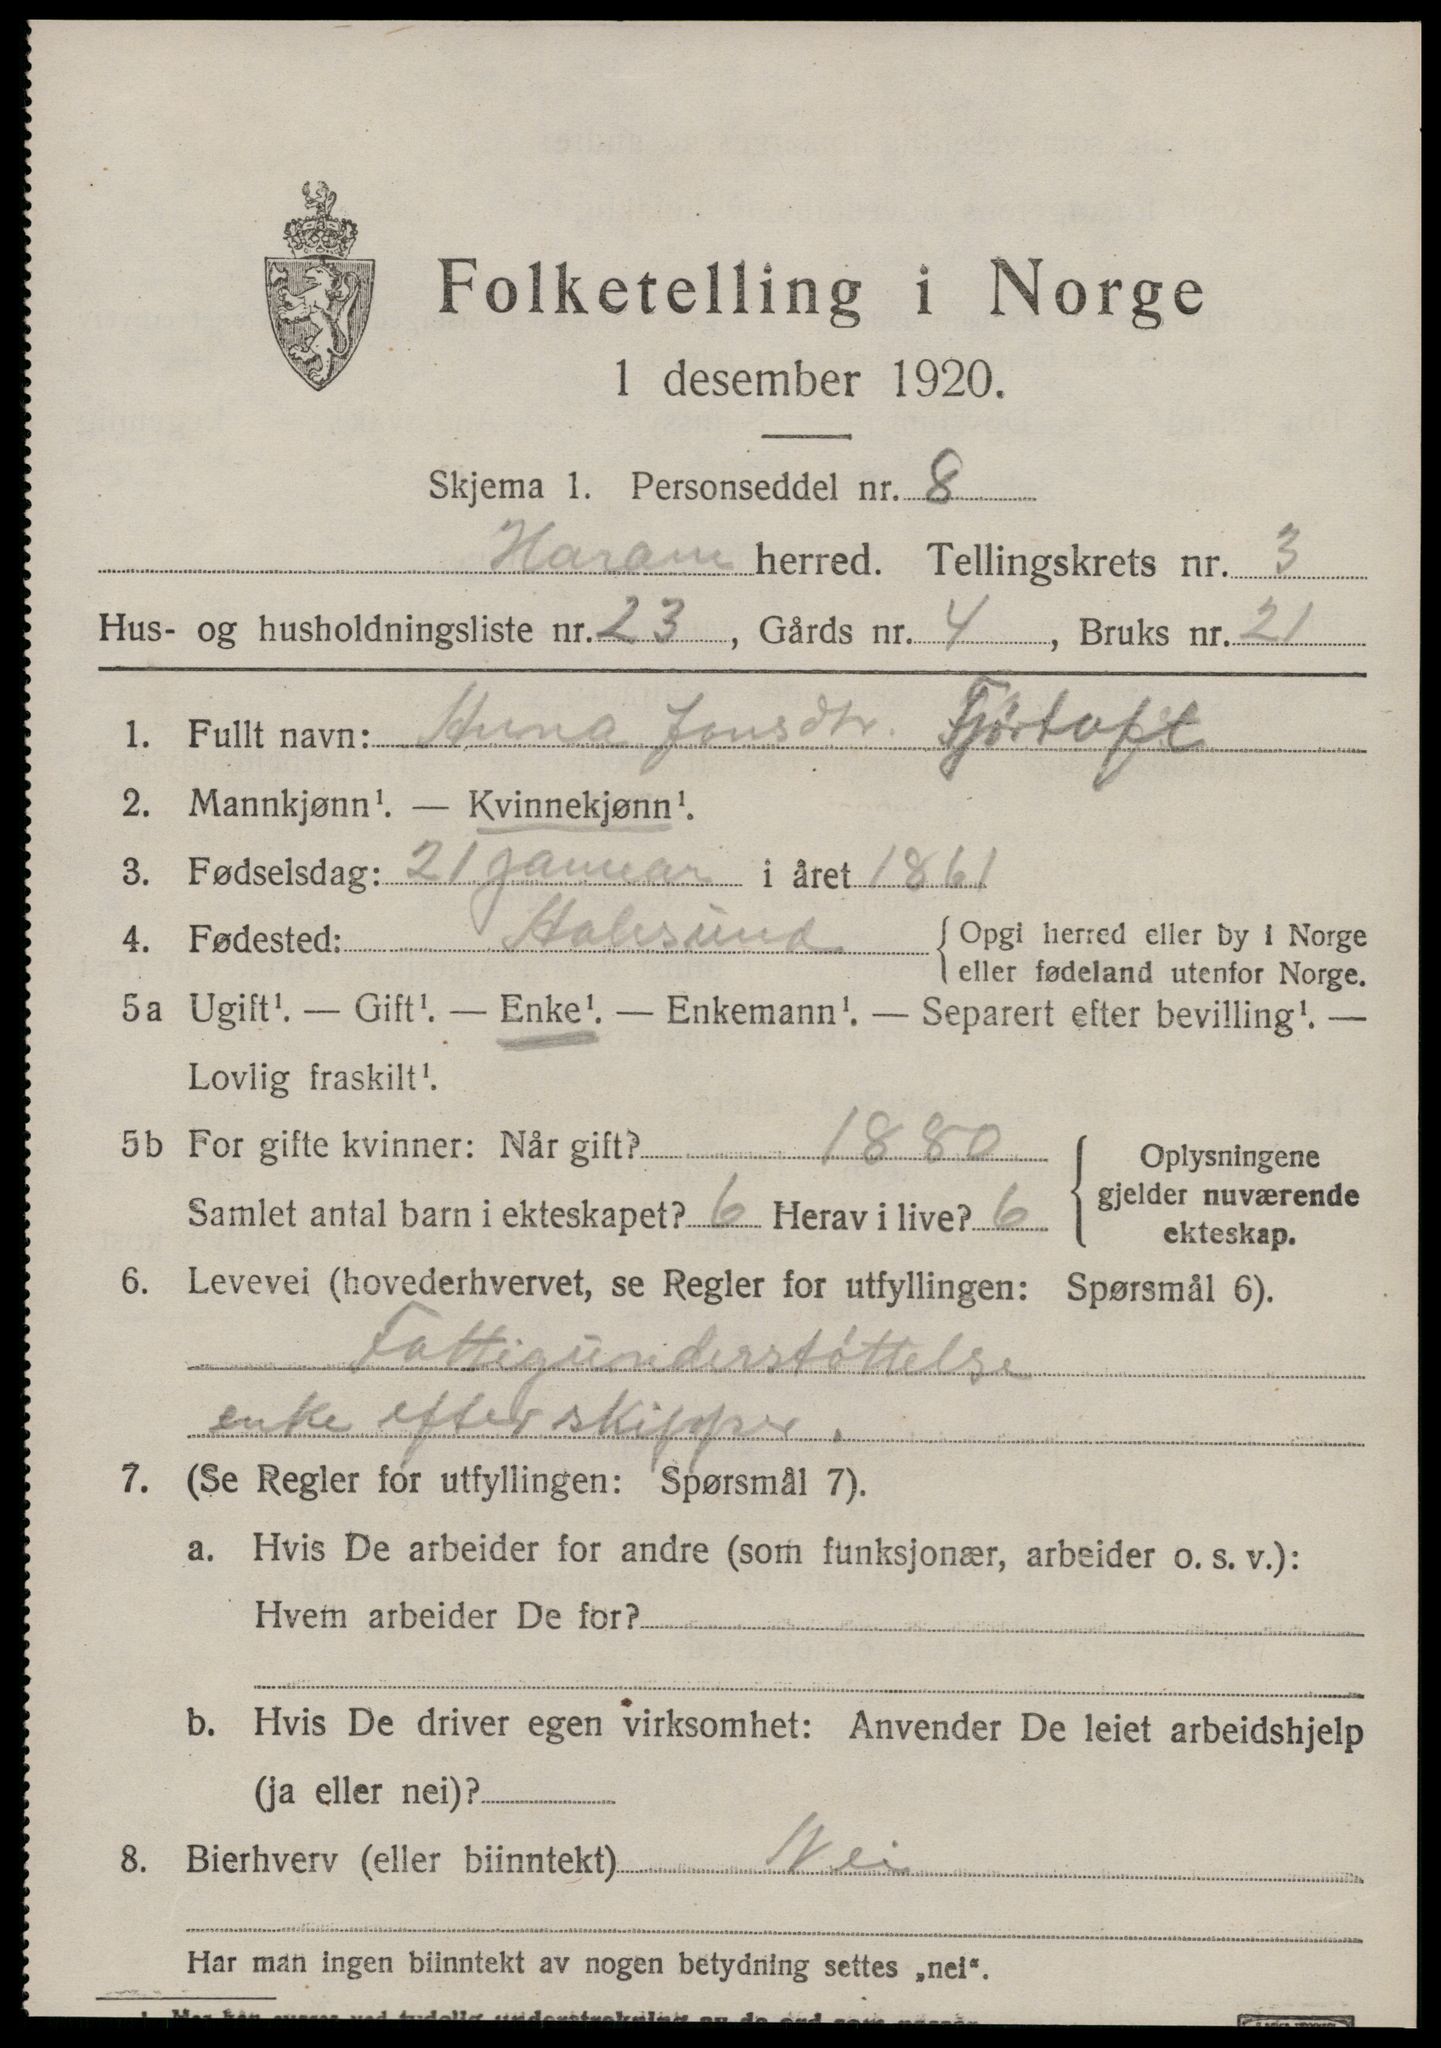 Folketelling i Norge
1 desember 1920.
Skjema 1. Personseddel nr. 8
Haram herred. Tellingskrets nr. 3
Hus- og husholdningsliste nr. 23, Gårds nr. 4, Bruks nr. 21
1. Fullt navn: Anna Jonsdtr. Fjørtoft
2. Mannkjønn¹. — Kvinnekjønn¹.
3. Fødselsdag: 21 januar i året 1861
4. Fødested: Aalesund
{ Opgi herred eller by i Norge
eller fødeland utenfor Norge.
5a Ugift¹. — Gift¹. — Enke¹. — Enkemann¹. — Separert efter bevilling¹. —
Lovlig fraskilt¹.
5b For gifte kvinner: Når gift? 1880
Samlet antal barn i ekteskapet? 6 Herav i live? 6
{ Oplysningene
gjelder nuværende
ekteskap.
6. Levevei (hovederhvervet, se Regler for utfyllingen: Spørsmål 6).
Fattigunderstøttelse
enke efter skipper.
7. (Se Regler for utfyllingen: Spørsmål 7).
a. Hvis De arbeider for andre (som funksjonær, arbeider o. s. v.):
Hvem arbeider De for?
b. Hvis De driver egen virksomhet: Anvender De leiet arbeidshjelp
(ja eller nei)?
8. Bierhverv (eller biinntekt) Nei
Har man ingen biinntekt av nogen betydning settes „nei“.